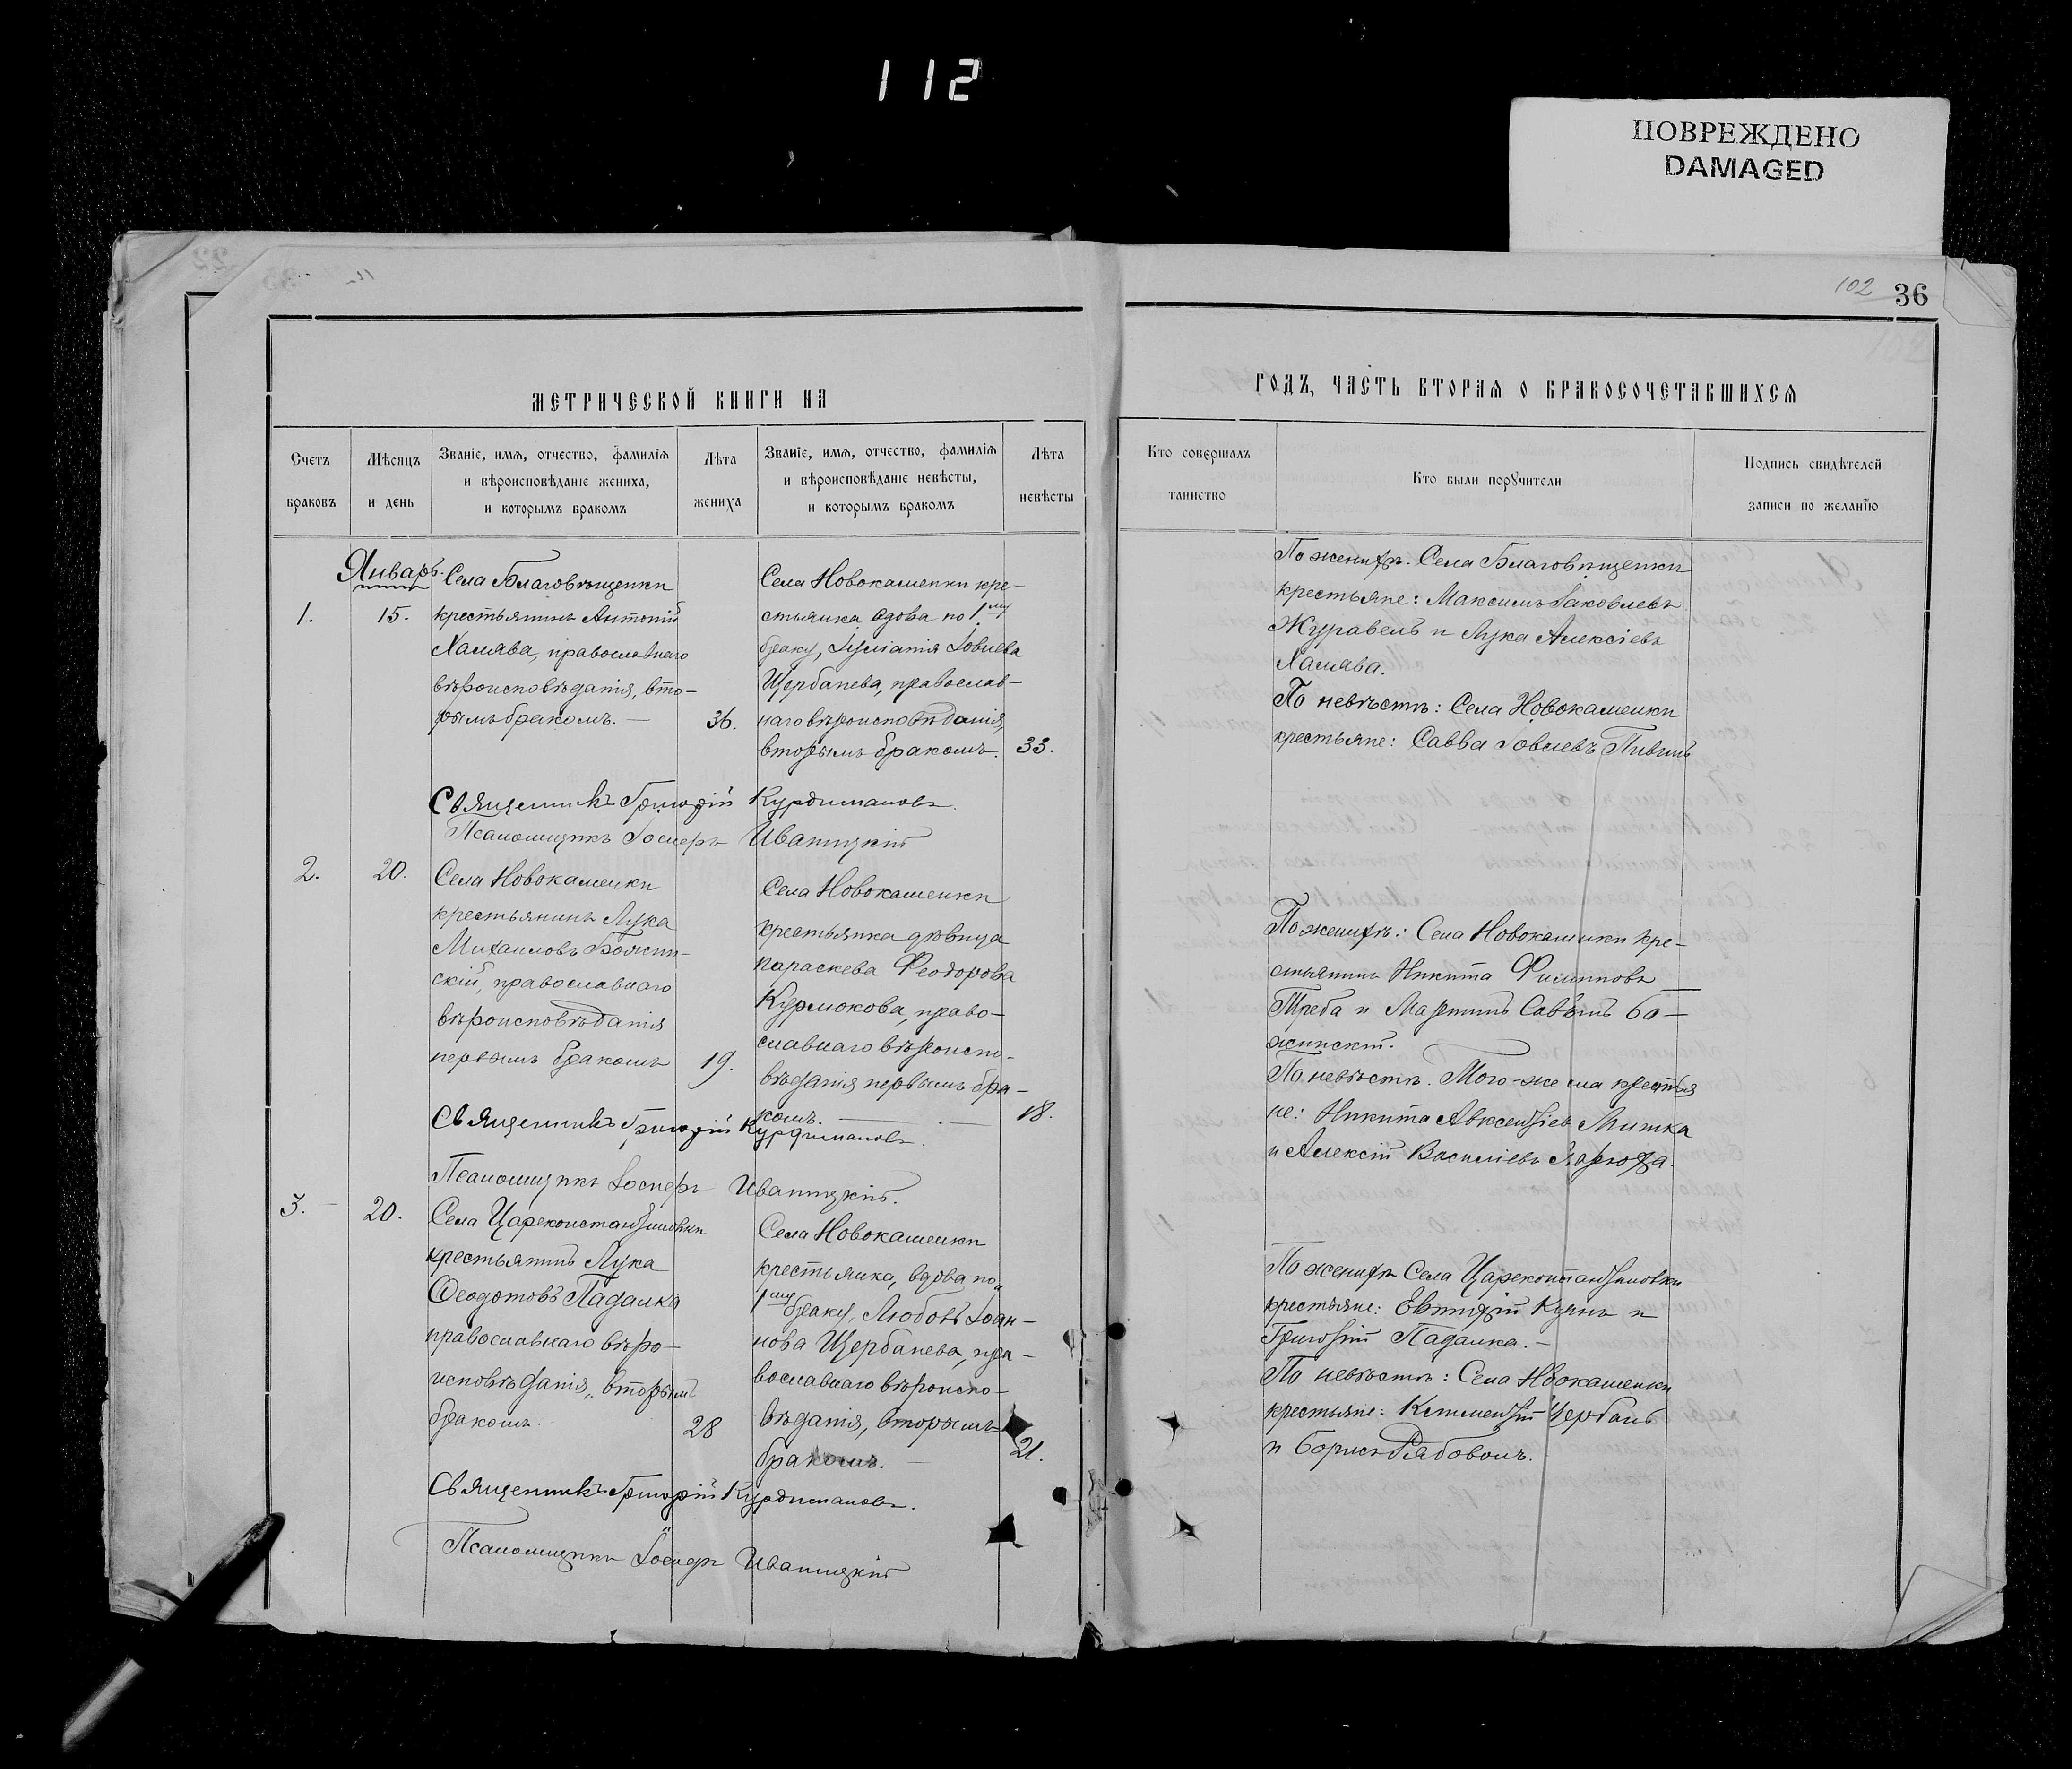 112
ПОВРЕЖДЕНО
DAMAGED
102 36
МЕТРИЧЕСКОЙ КНИГИ НА
ГОДЪ, ЧАСТЬ ВТОРАЯ О БРАКОСОЧЕТАВШИХСЯ
Счетъ браковъ
Мѣсяцъ и день
Званіе, имя, отчество, фамилія
и вѣроисповѣданіе жениха,
и которымъ бракомъ
Лѣта жениха
Званіе, имя, отчество, фамилія
и вѣроисповѣданіе невѣсты,
и которымъ бракомъ
Лѣта невѣсты
Кто совершалъ таинство
Кто были поручители
Подпись свидѣтелей
записи по желанію
Январь.
1. 15.
Села Благовѣщенки
крестьянинъ Антоній
Халява, православнаго
вѣроисповѣданія, вто-
рымъ бракомъ. — 36.
Села Новокаменки кре-
стьянка вдова по 1му
браку, Іуліанія Іовлева
Щербанева, православ-
наго вѣроисповѣданія,
вторымъ бракомъ. 33.
По женихѣ. Села Благовѣщенки
крестьяне: Максимъ Іаковлевъ
Журавель и Лука Алексіевъ
Халява.
По невѣстѣ: Села Новокаменки
крестьяне: Савва Іовлевъ
Священникъ Григорій Курдимановъ.
Псаломщикъ Іосифъ Иваницкій
2. 20.
Села Новокаменки
крестьянинъ Лука
Михаиловъ
скій, православнаго
вѣроисповѣданія
первымъ бракомъ 19.
Села Новокаменки
крестьянка дѣвица
Параскева Феодорова
Курлюкова, право-
славнаго вѣроиспо-
вѣданія первымъ бра-
комъ. — 18.
По женихѣ: Села Новокаменки кре-
стьянинъ Никита Филипповъ
Треба и
По невѣстѣ. Того-же села крестья
не: Никита Авксентіев Митка
и Алексій Василіевъ
Священникъ Григорій Курдимановъ.
Псаломщикъ Іосифъ Иваницкій.
3. 20.
Села Цареконстантиновки
крестьянинъ Лука
Феодотовъ Падалка
православнаго вѣро-
исповѣданія, вторымъ
бракомъ. 28
Села Новокаменки
крестьянка, вдова по
1му браку, Любовь Іоан-
нова Щербанева, пра-
вославнаго вѣроиспо-
вѣданія, вторымъ
бракомъ. — 21.
По женихѣ Села Цареконстантиновки
крестьяне: Евтихій Куянъ и
Григорій Падалка. —
По невѣстѣ: Села Новокаменки
крестьяне: Климентій Щербань
и Борисъ
Священникъ Григорій Курдимановъ.
Псаломщикъ Іосифъ Иваницкій